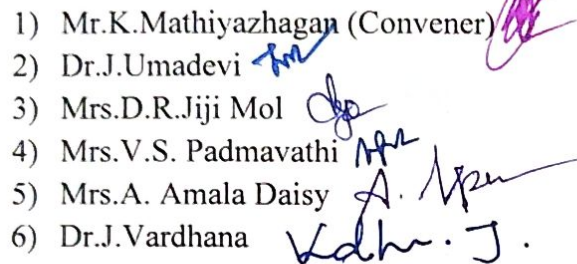 1) Mr.K.Mathiyazhagan (Convener)
2) Dr.J.Umadevi
3) Mrs.D.R.Jiji Mol
4) Mrs.V.S. Padmavathi
5) Mrs.A. Amala Daisy A.
6) Dr.J.Vardhana